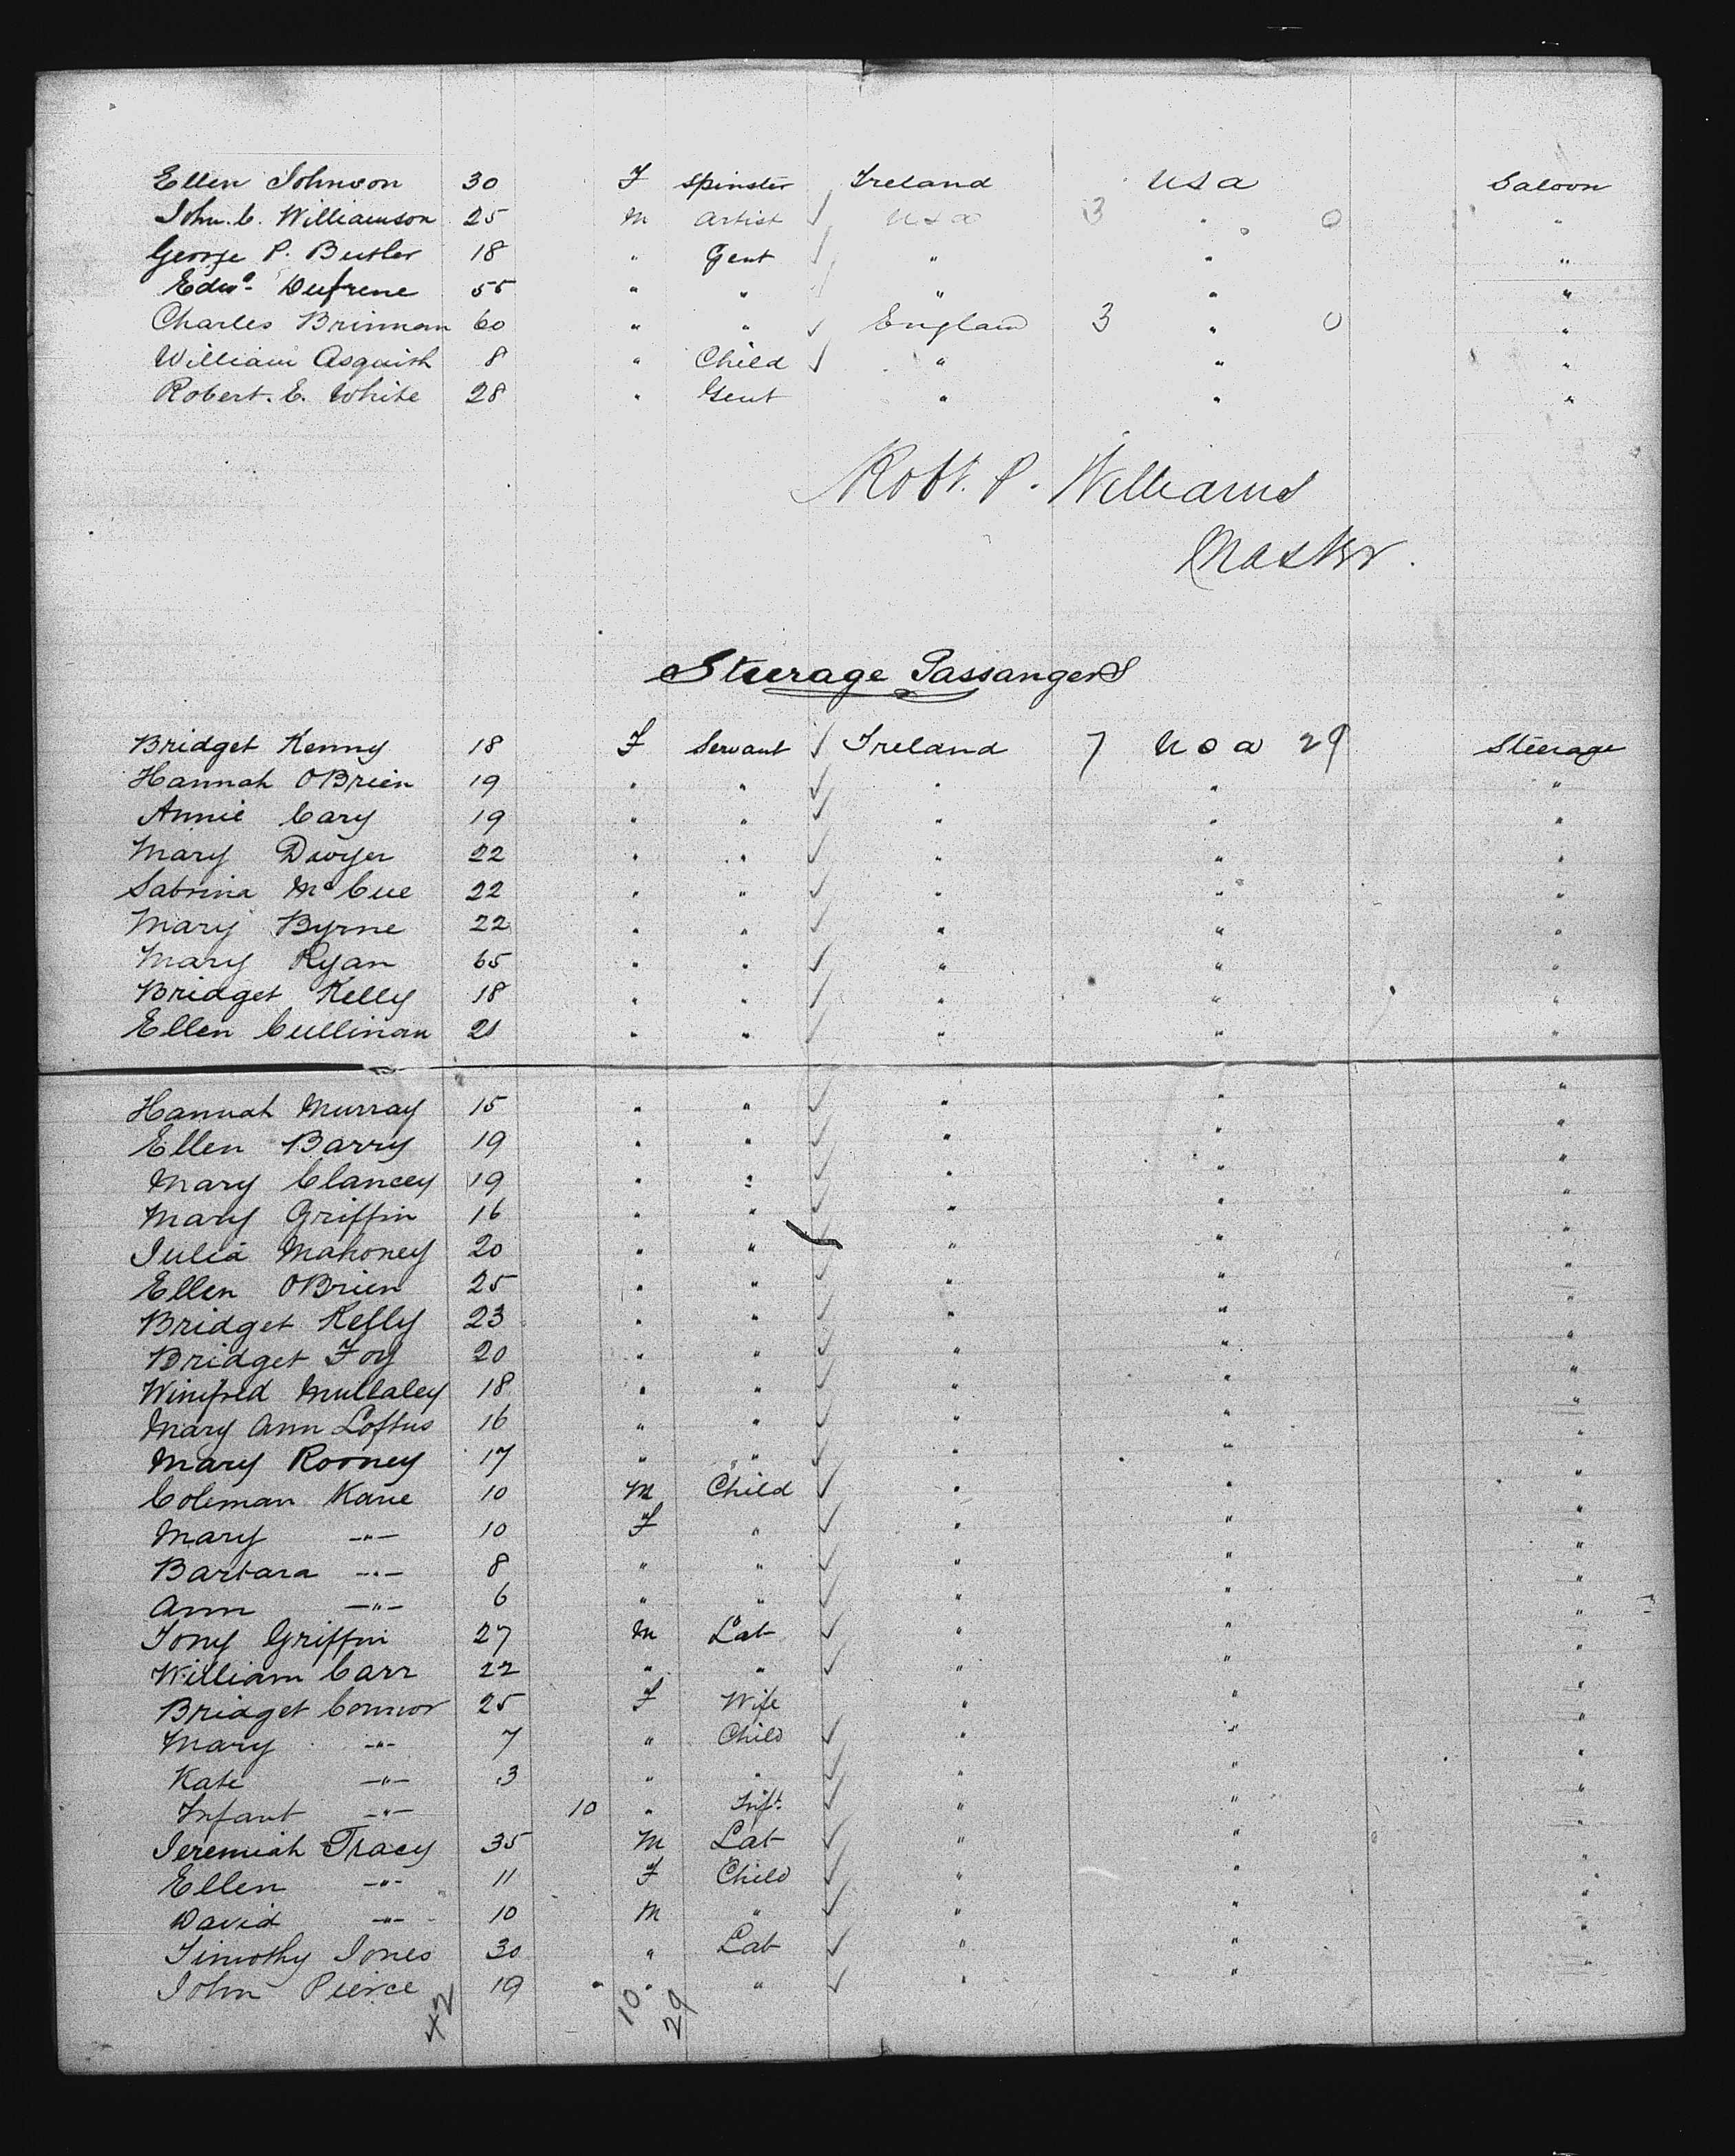 Ellen Johnson 30 F Spinster Ireland USA Saloon
John. C. Williamson 25 M Artist ✓ USA 3 " 0 "
George P. Butler 18 " Gent ✓ " " "
Edwd. Dufrene 55 " " " " "
Charles Brinman 60 " " ✓ England 3 " 0 "
William Asquith 8 " Child ✓ " " "
Robert. E. White 28 " Gent " " "
Robt. P. Williams
Master.
Steerage Passangers
Bridget Kenny 18 F Servant ✓ Ireland 7 USA 29 Steerage
Hannah OBrien 19 " " ✓ " " "
Annie Cary 19 " " ✓ " " "
Mary Dwyer 22 " " ✓ " " "
Sabrina McCue 22 " " ✓ " " "
Mary Byrne 22 " " ✓ " " "
Mary Ryan 65 " " ✓ " " "
Bridget Kelly 18 " " ✓ " " "
Ellen Cullinan 21 " " ✓ " " "
Hannah Murray 15 " " ✓ " " "
Ellen Barry 19 " " ✓ " " "
Mary Clancey 19 " " ✓ " " "
Mary Griffin 16 " " ✓ " " "
Julia Mahoney 20 " " ✓ " " "
Ellen OBrien 25 " " ✓ " " "
Bridget Kelly 23 " " ✓ " " "
Bridget Foy 20 " " ✓ " " "
Winifred Mullaley 18 " " ✓ " " "
Mary Ann Loftus 16 " " ✓ " " "
Mary Rooney 17 " " ✓ " " "
Coleman Kane 10 M Child ✓ " " "
Mary -"- 10 F " ✓ " " "
Barbara -"- 8 " " ✓ " " "
Ann -"- 6 " " ✓ " " "
Tony Griffin 27 M Lab ✓ " " "
William Carr 22 " " ✓ " " "
Bridget Connor 25 F Wife " " "
Mary -"- 7 " Child ✓ " " "
Kate -"- 3 " " ✓ " " "
Infant -"- 10 " Inft. ✓ " " "
Jeremiah Tracy 35 M Lab ✓ " " "
Ellen -"- 11 F Child ✓ " " "
David -"- 10 M " ✓ " " "
Timothy Jones 30 " Lab ✓ " " "
John Pierce 19 " " ✓ " " "
42 10 29